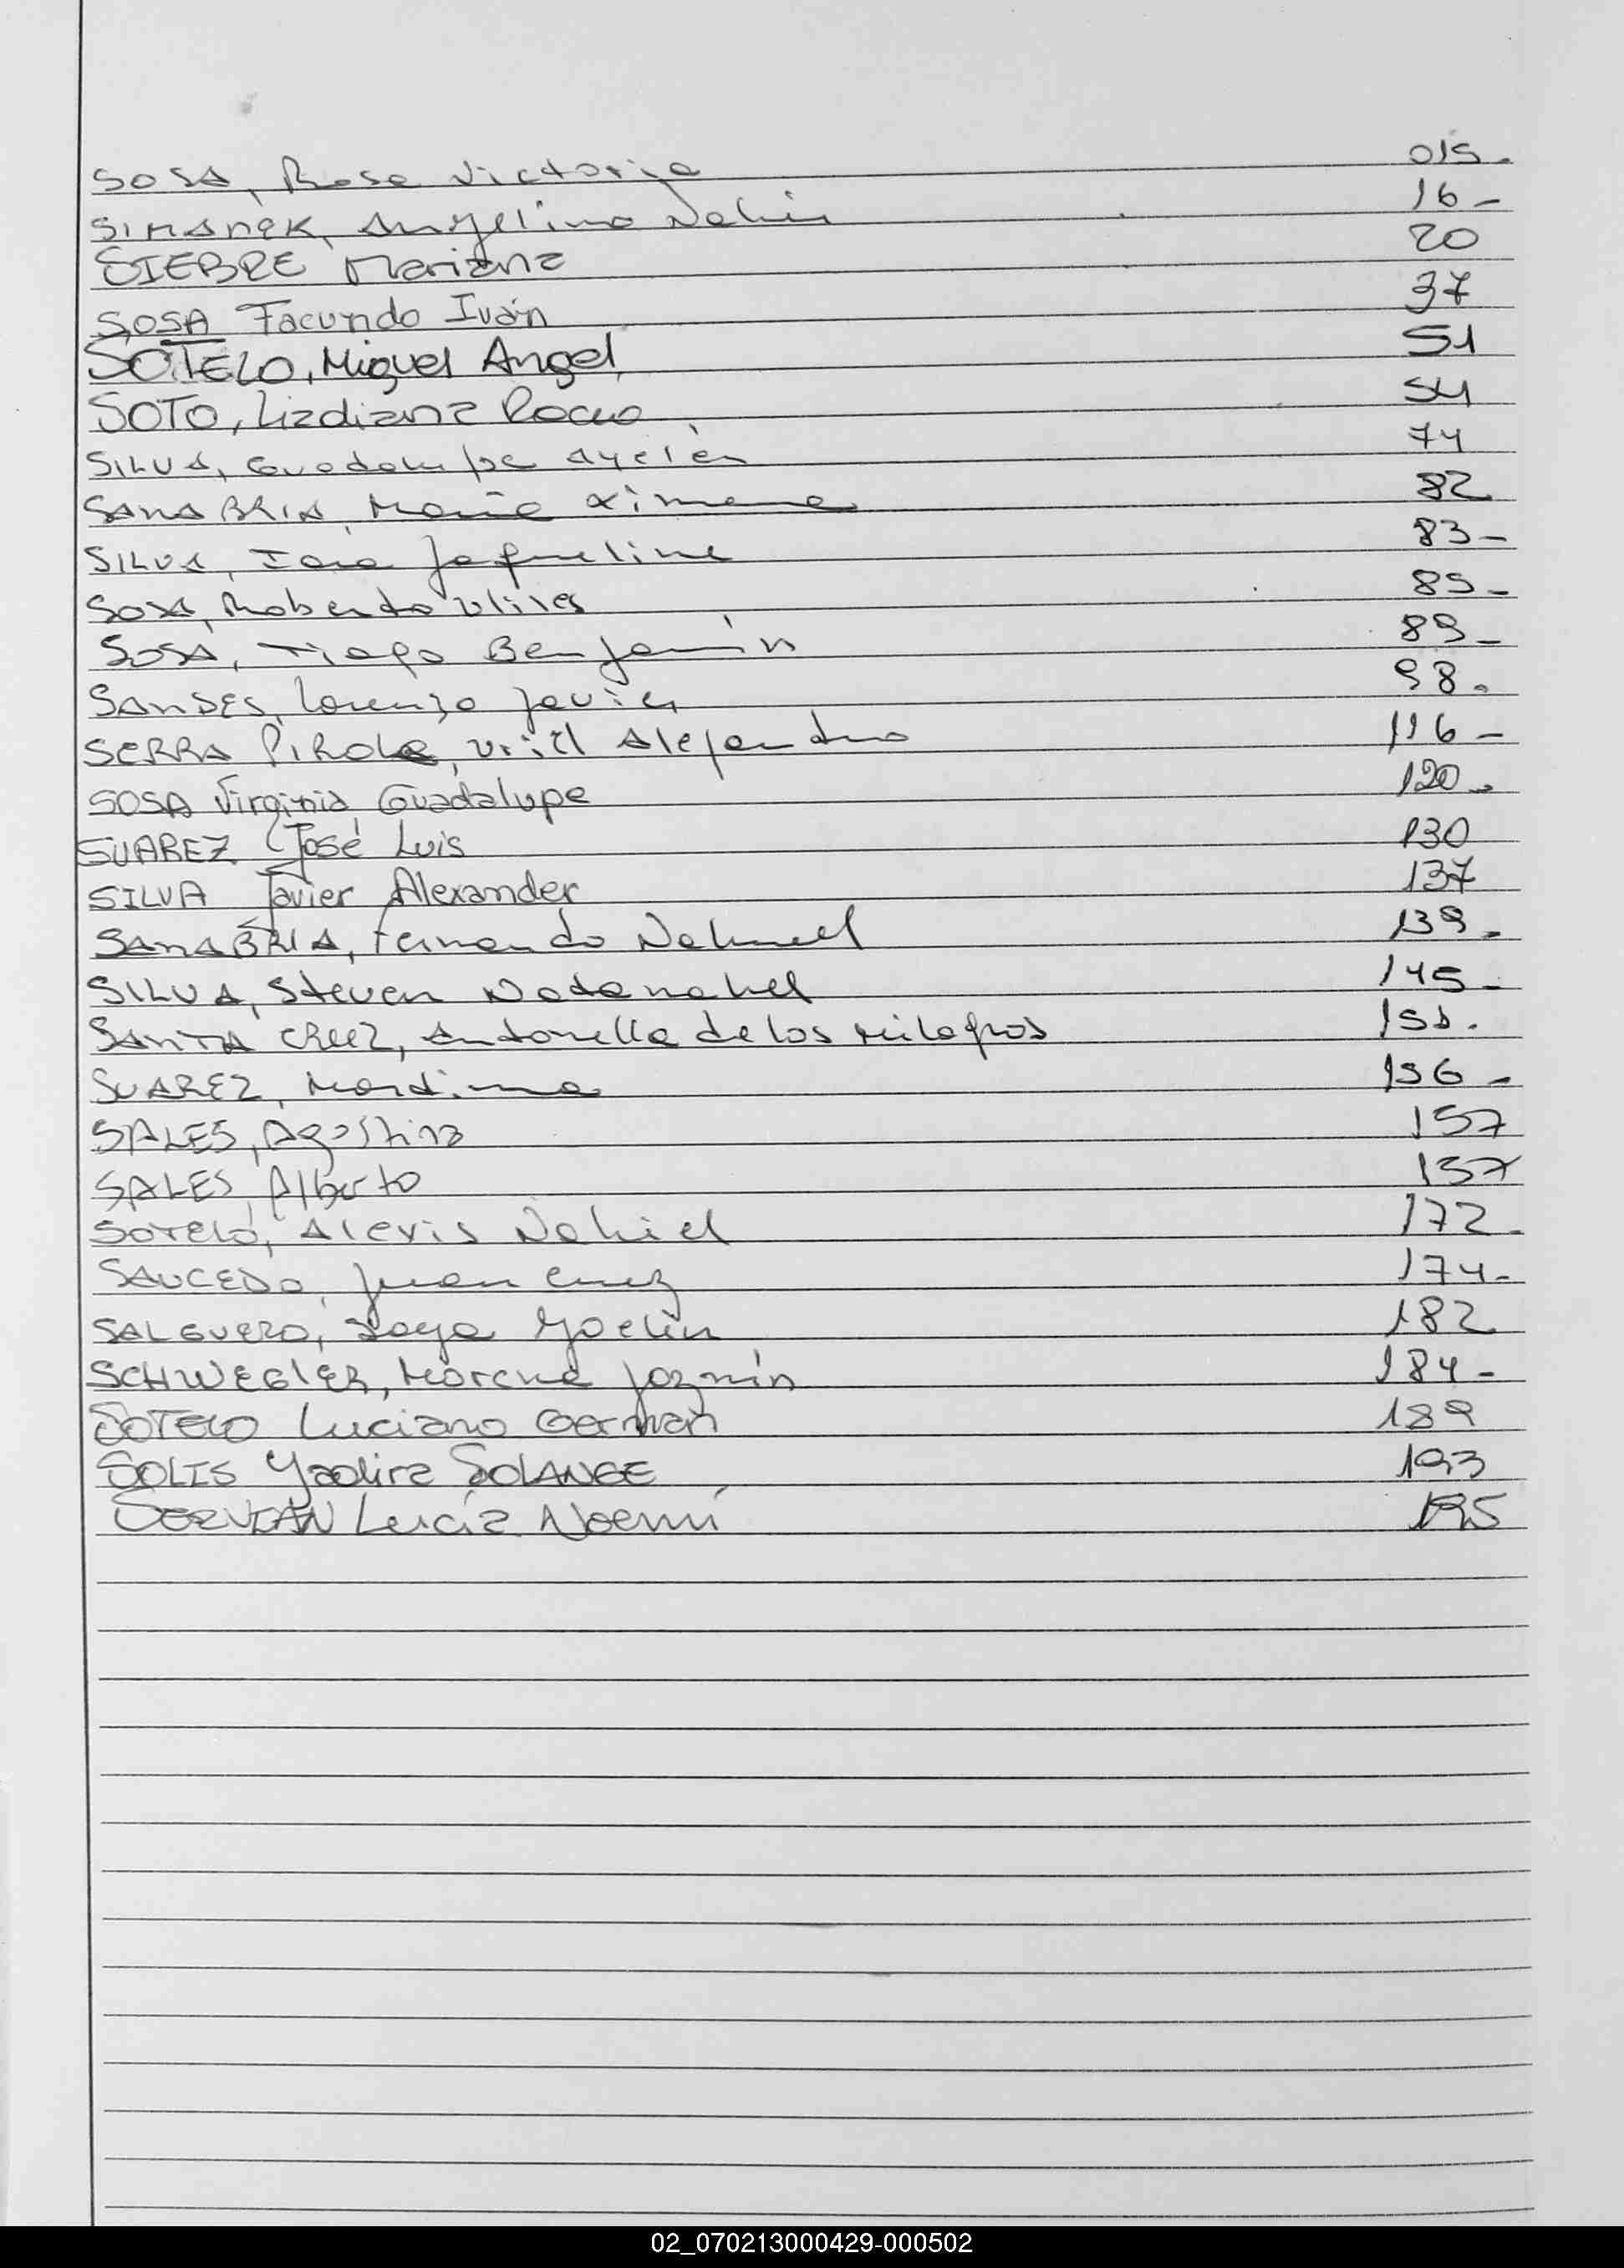 SOSA, Rosa Victoria 015.
SIMANEK, Angelina Nahir 16-
SIEBRE Mariana 20
SOSA Facundo Iván 37
SOTELO, Miguel Angel 51
SOTO, Lizdiana Rocio 54
SILVA, Guadalupe Ayelén 74
SANABRIA, María Ximena 82
SILVA, Iara Jaqueline 83-
SOSA, Roberto Ulises 85-
SOSA, Tiago Benjamín 89-
SANDES, Lorenzo Javier 98.
SERRA PIROLA, Uriel Alejandro 116-
SOSA Virginia Guadalupe 120.
SUAREZ José Luis 130
SILVA Javier Alexander 137
SANABRIA, Fernando Nahuel 139.
SILVA, Steven Natanahel 145-
SANTA CRUZ, Antonella de los Milagros 151.
SUAREZ, Martina 156-
SALES, Agostina 157
SALES, Alberto 157
SOTELO, Alexis Nahiel 172.
SAUCEDO, Juan Cruz 174-
SALGUERO, Yoelin 182
SCHWEGLER, Morena Jazmín 184-
SOTELO Luciano German 189
SOLIS Yadira SOLANGE 193
SERVIAN Lucía Noemí 195
02_070213000429-000502